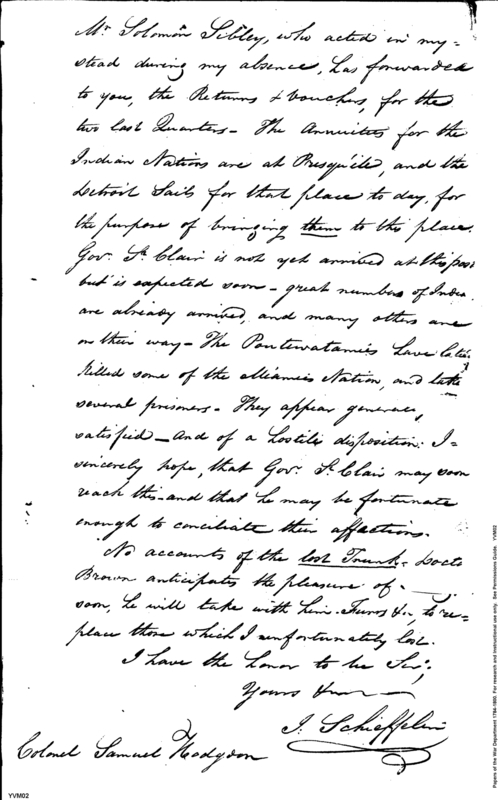 Mr. Solomon Sibley, who acted in my-
stead during my absence, has forwarded
to you, the Returns & Vouchers, for the
two last Quarters - The Annuities for the
Indian Nations are at Presqu'ile, and the
Detroit Sails for that place to day, for
the purpose of bringing them to this place.
Gov. St. Clair is not yet arrived at this post
but is expected soon - great numbers of India
are already arrived, and many others are
on their way - The Poutewatamies have
killed some of the Miamies Nation, and
several prisoners - They appear
satisfied - and of a hostile disposition. I -
sincerely hope, that Gov. St. Clair may soon
reach this - and that he may be fortunate
enough to conciliate their affections.
No accounts of the lost Trunk - Docto
Brown anticipates the pleasure of -
soon, he will take with him to re=
place those which I unfortunately lost.
I have the honor to be Sir;
Yours
J. Schieffelin
Colonel Samuel Hodgdon
YVM02
Papers of the War Department 1784-1800. For research and instructional use only. See Permissions Guide. YVM02